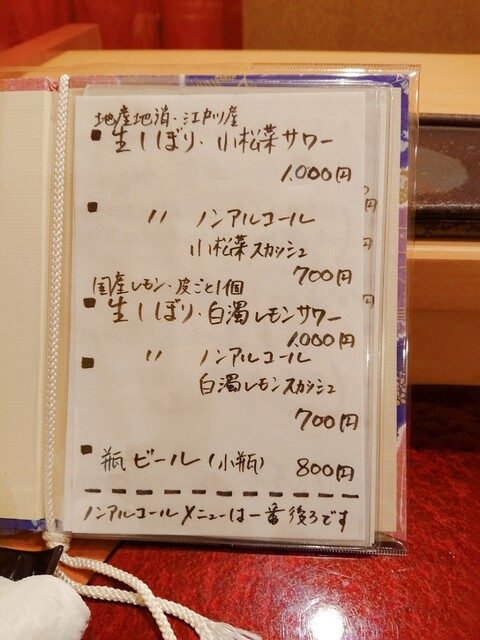 地産地消・江戸川産
■ 生しぼり・小松菜サワー
1,000円
■ 〃 ノンアルコール
小松菜スカッシュ
700円
国産レモン・皮ごと1個
■ 生しぼり・白濁レモンサワー
1,000円
■ 〃 ノンアルコール
白濁レモンスカッシュ
700円
■ 瓶ビール(小瓶) 800円
ノンアルコールメニューは一番後ろです